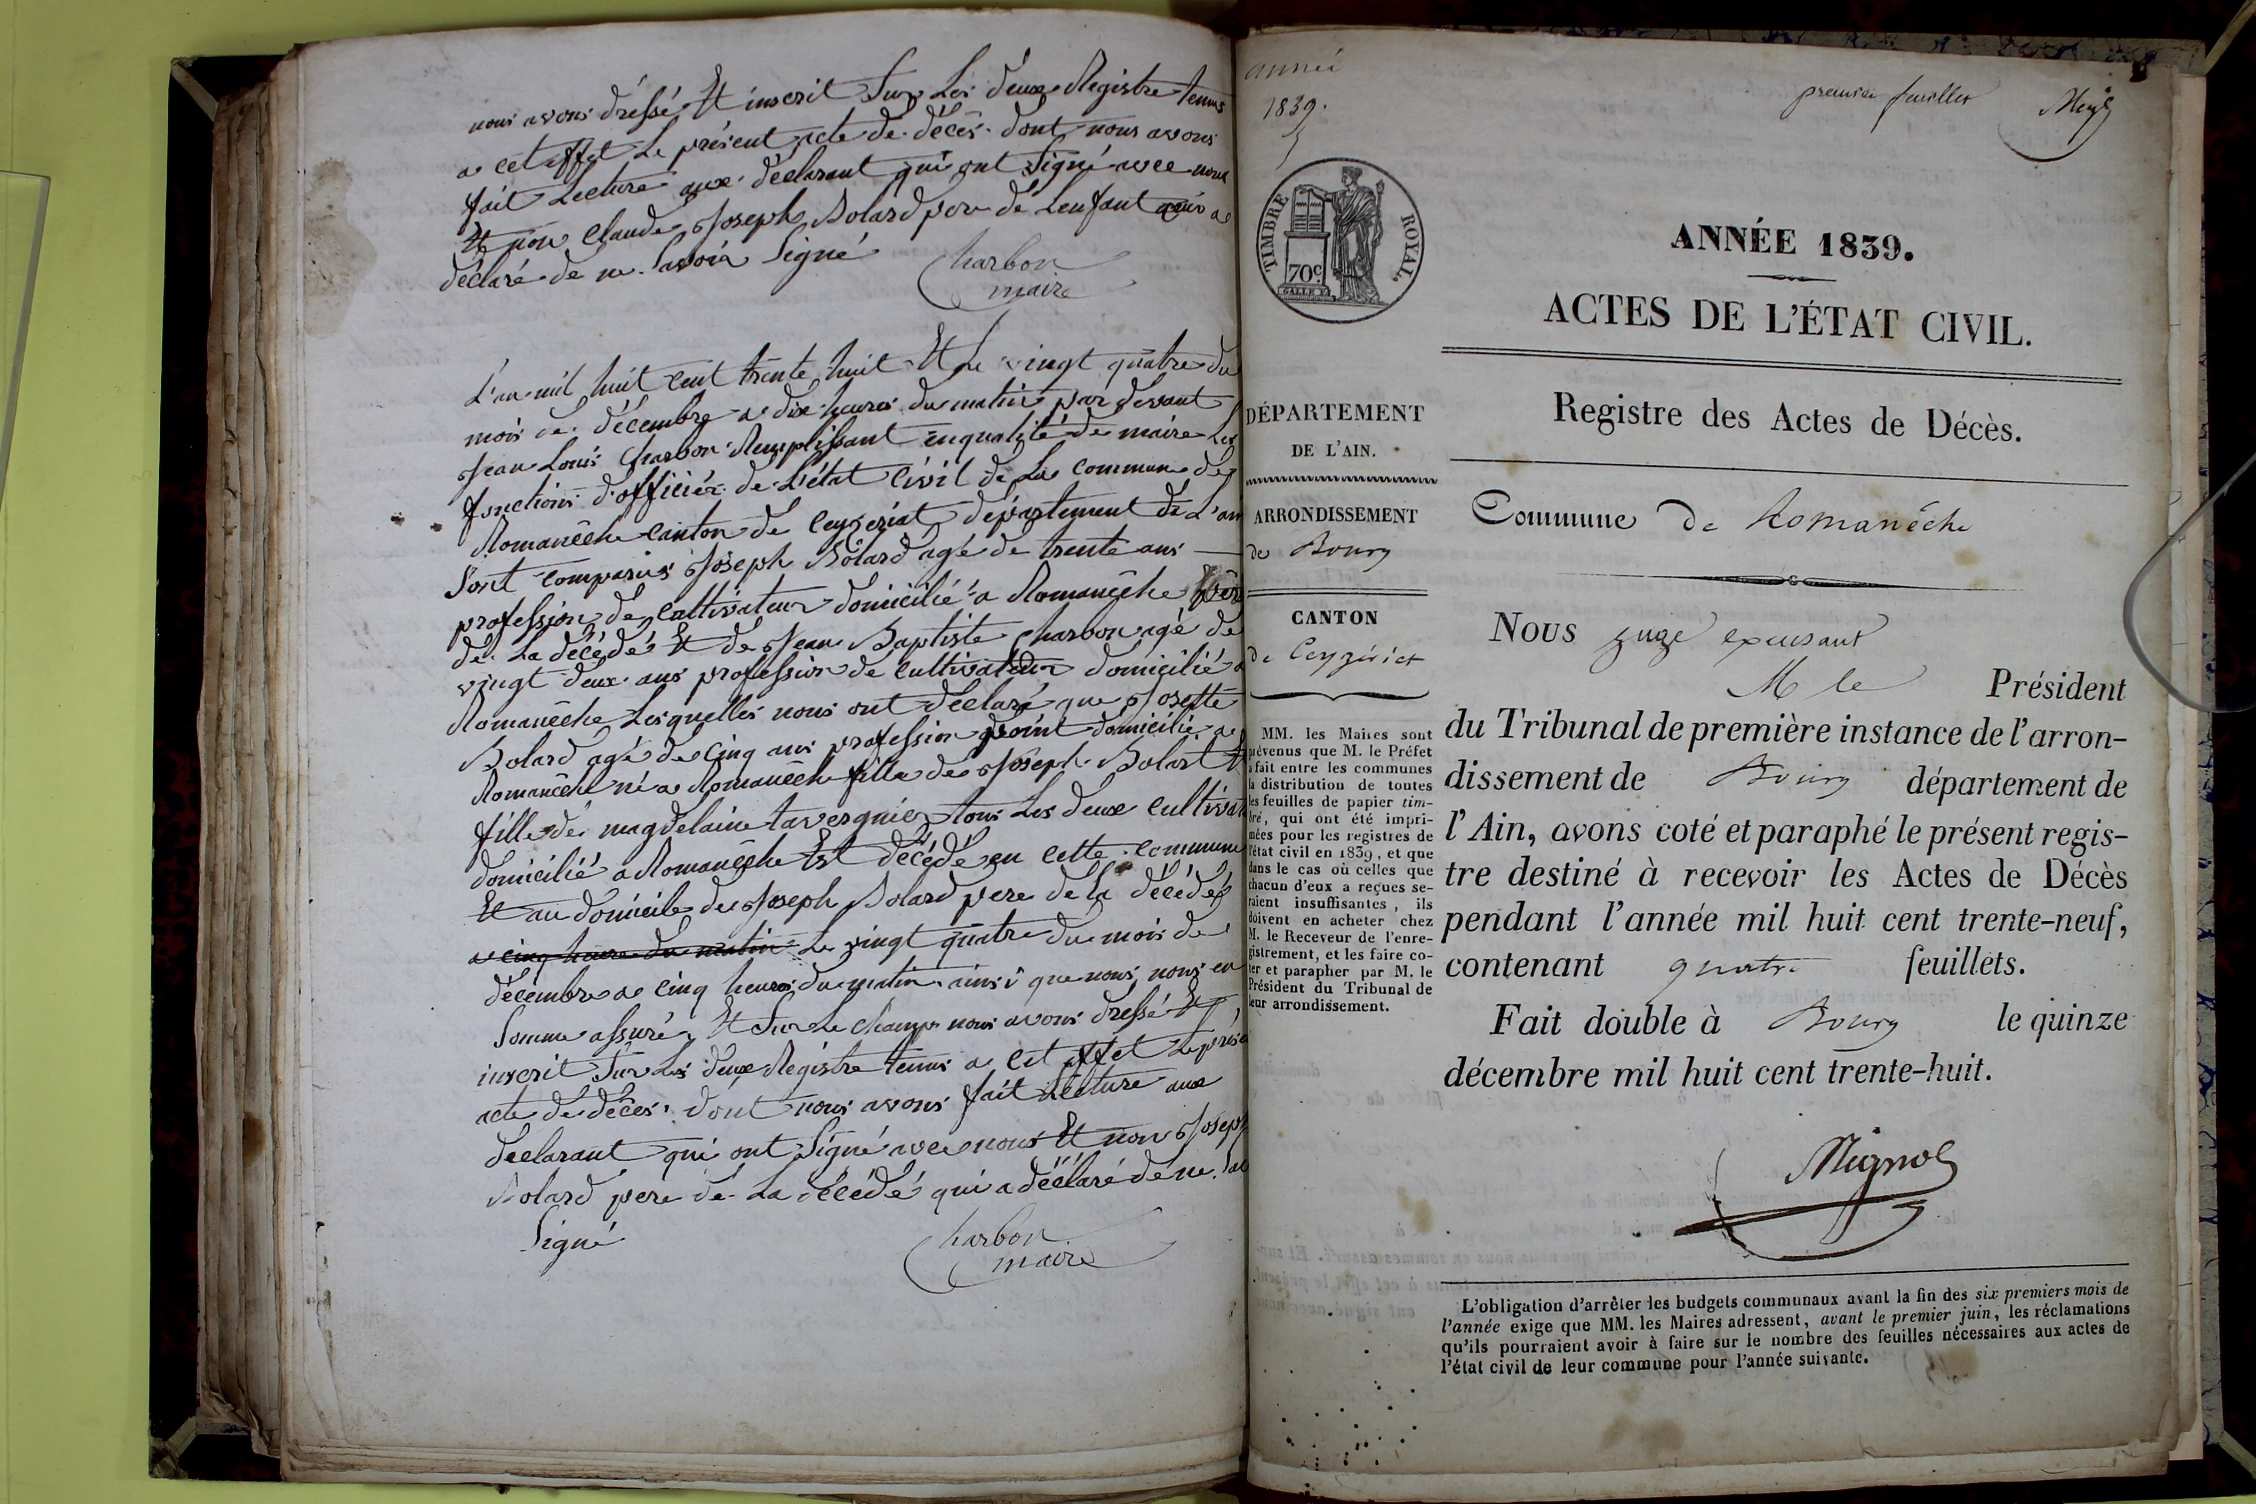 nous avons dressé Et inscrit Sur Les deux Registre tenus
a cet effet Le présent acte de décès dont nous avons
fait Lecture aux déclarant qui ont Signé avec nous
Et non Claude Joseph Bolard pere de Lenfant qui a
déclaré de ne Savoir Signé
Charbon
maire
L'an mil huit cent trente huit Et Le vingt quatre du
mois de décembre a dix heures du matin par devant
Jean Louis Charbon Remplissant enqualité de maire Les
fonctions d'officier de L'état civil de La commune de
Romanèche canton de Ceyzeriat département de L'ain
Sont comparus Joseph Bolard agé de trente ans
profession de cultivateur domicilié a Romanèche père
de La décédé Et de Jean Baptiste Charbon agé de
vingt deux ans profession de cultivateur domicilié a
Romanèche Lesquelles nous ont déclaré que Josette
Bolard agé de cinq ans profession point domicilié a
Romanèche né a Romanèche fille de Joseph Bolard Et
fille de magdelaine tavergnier tous Les deux cultivat
domicilié a Romanèche Est décédé en cette commune
Et au domicile de Joseph Bolard pere de la décédé
a cinq heure du matin Le vingt quatre du mois de
décembre a cinq heures du matin ainsi que nous nous en
Somme assuré Et Sur Le champ nous avons dressé Et
inscrit Sur Les deux Registre tenus a cet effet Le présen
acte de décès dont nous avons fait Lecture aux
déclarant qui ont Signé avec nous Et non Joseph
Bolard pere de La décédé qui a déclaré de ne Sav
Signé
Charbon
maire
année
1839.
premier feuillet
TIMBRE ROYAL.
70c.
ANNÉE 1839.
ACTES DE L'ÉTAT CIVIL.
Registre des Actes de Décès.
DÉPARTEMENT
DE L'AIN.
ARRONDISSEMENT
de Bourg
CANTON
de Ceyzériat
MM. les Maires sont
prévenus que M. le Préfet
a fait entre les communes
la distribution de toutes
les feuilles de papier tim-
bré, qui ont été impri-
mées pour les registres de
l'état civil en 1839, et que
dans le cas où celles que
chacun d'eux a reçues se-
raient insuffisantes, ils
doivent en acheter chez
M. le Receveur de l'enre-
gistrement, et les faire co-
ter et parapher par M. le
Président du Tribunal de
leur arrondissement.
Commune de Romanèche
NOUS juge excusant
M le Président
du Tribunal de première instance de l'arron-
dissement de Bourg département de
l'Ain, avons coté et paraphé le présent regis-
tre destiné à recevoir les Actes de Décès
pendant l'année mil huit cent trente-neuf,
contenant quatre feuillets.
Fait double à Bourg le quinze
décembre mil huit cent trente-huit.
L'obligation d'arrêter les budgets communaux avant la fin des six premiers mois de
l'année exige que MM. les Maires adressent, avant le premier juin, les réclamations
qu'ils pourraient avoir à faire sur le nombre des feuilles nécessaires aux actes de
l'état civil de leur commune pour l'année suivante.